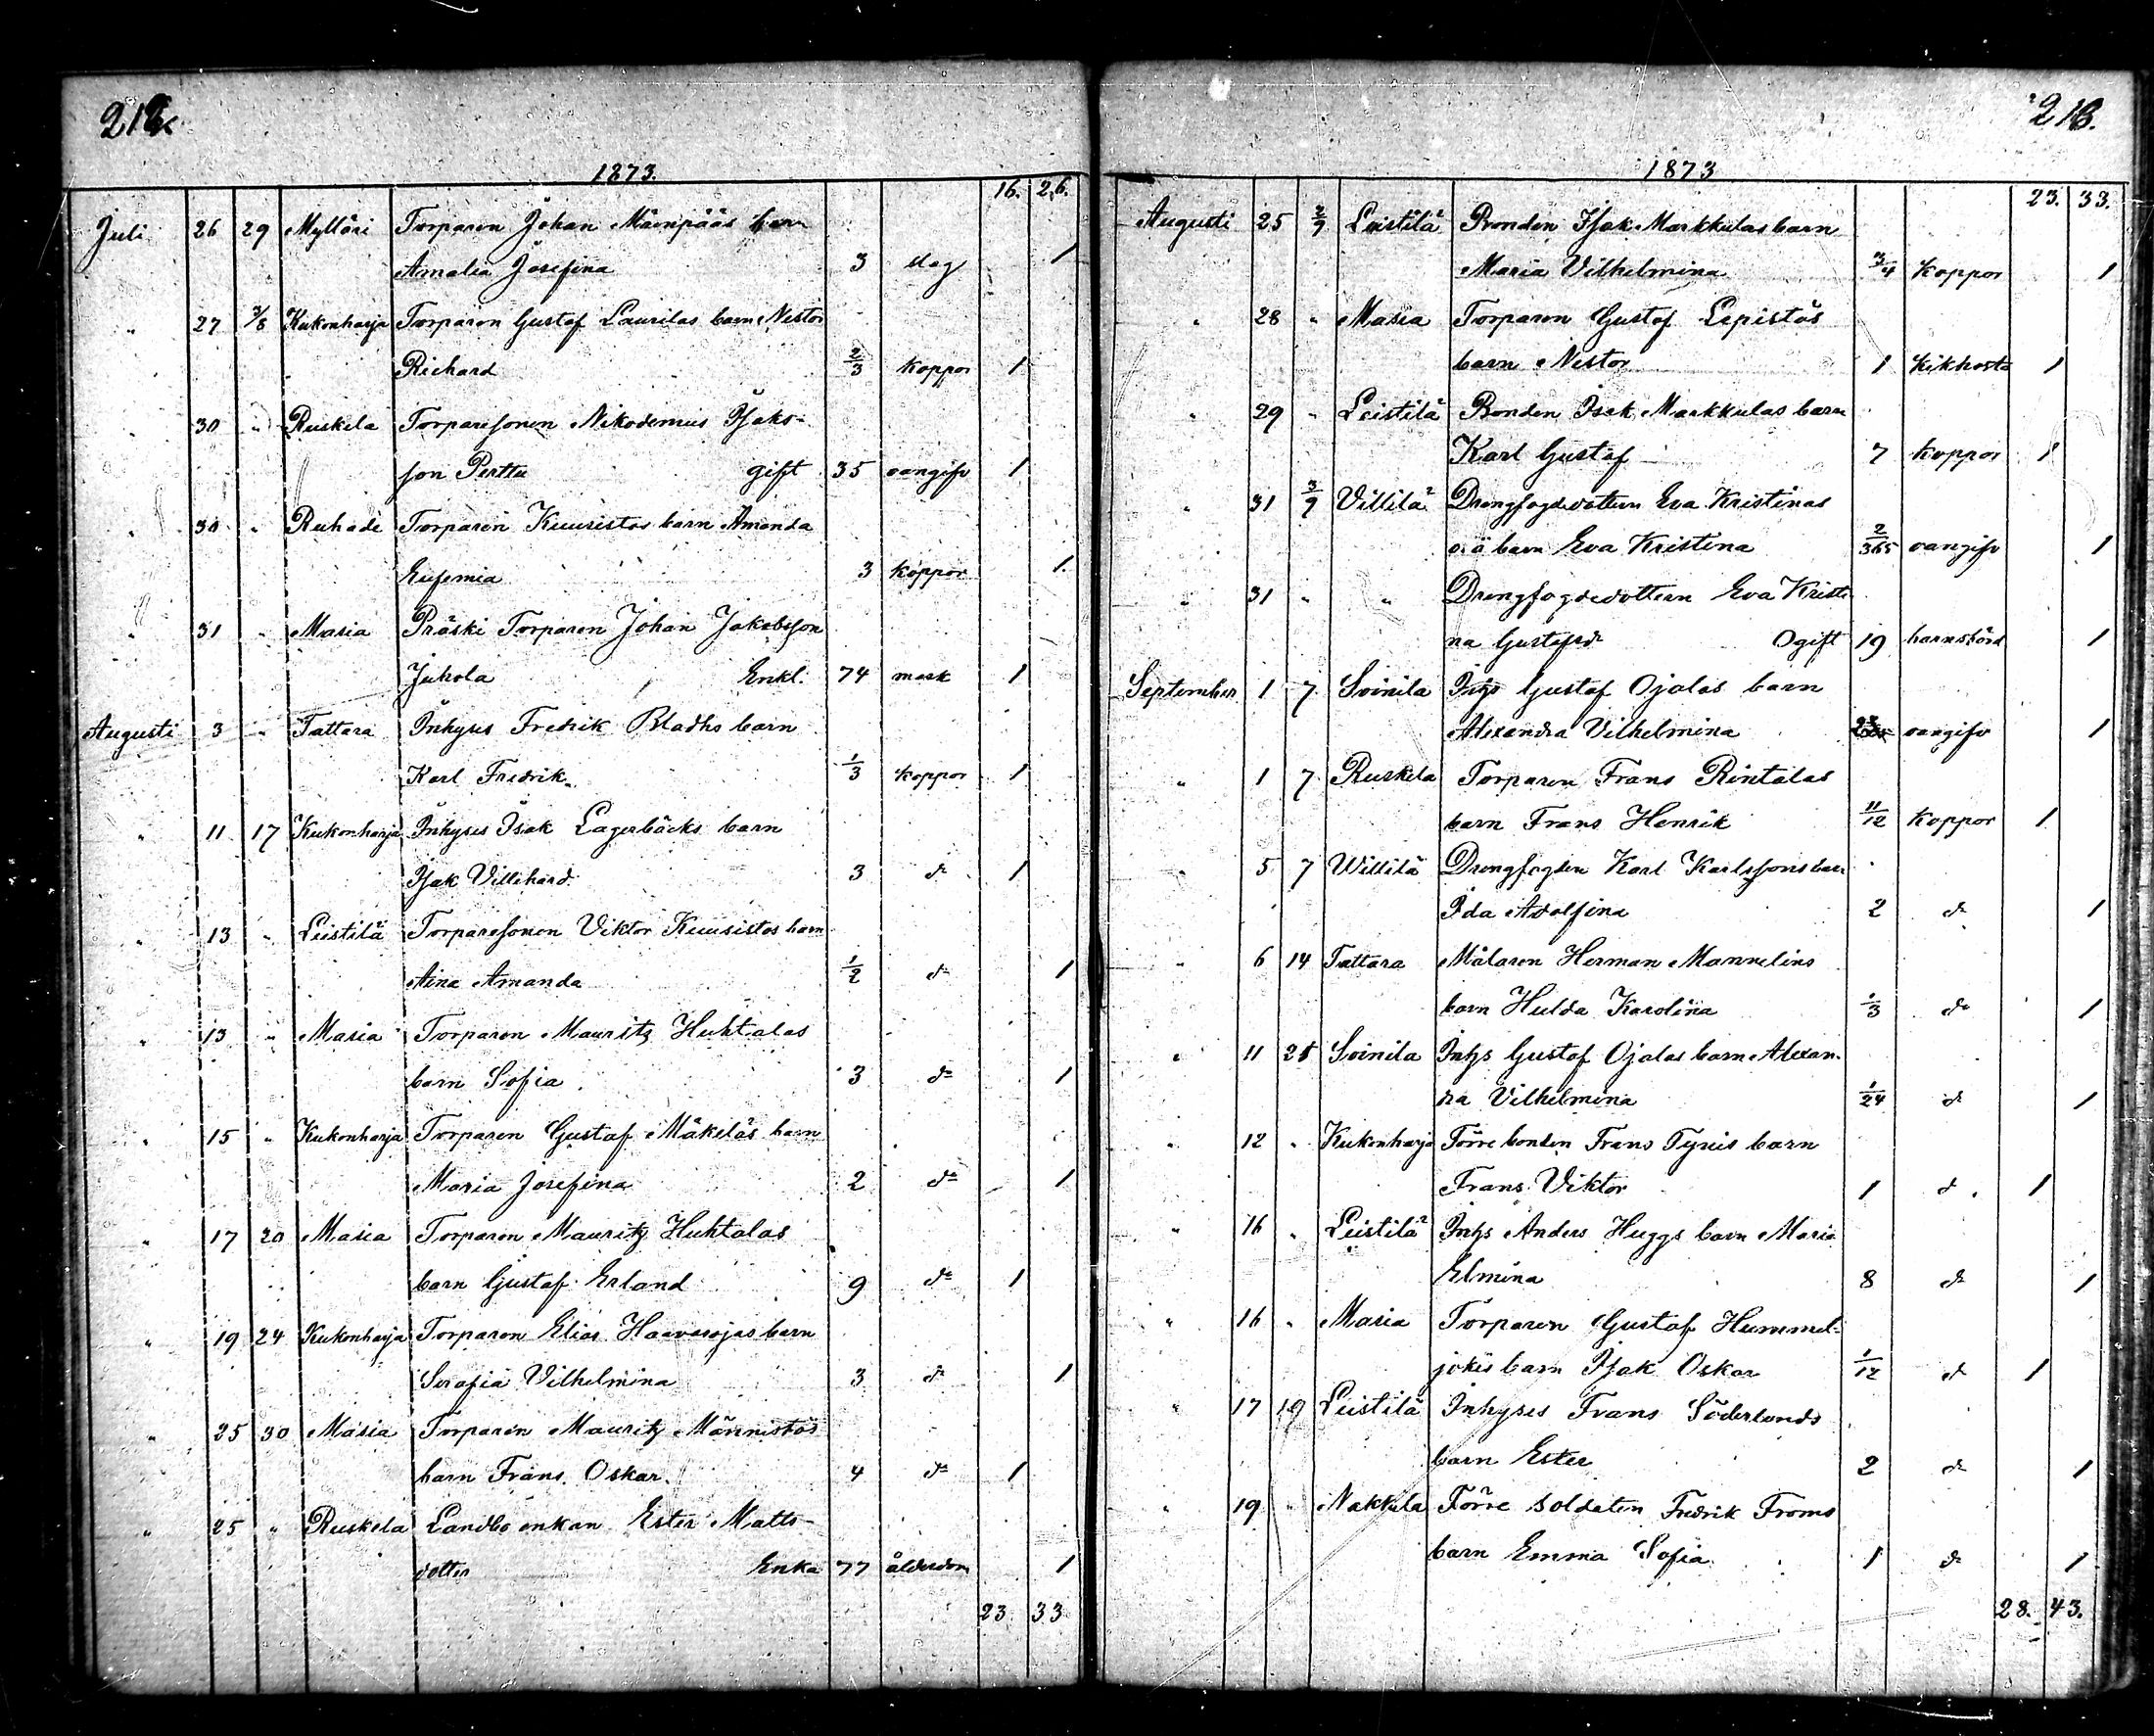 212.
1873.
16. 26.
Juli 26 29 Mylläri Torparen Johan Mäenpääs barn
Amalia Josefina 3 slag 1
" 27 3/8 Kukonharja Torparen Gustaf Laurilas barn Nestor
Richard 2/3 koppor 1
" 30 " Ruskela Torparesonen Nikodemus Isaks-
son Perttu gift 35 oangifv 1
" 30 " Ruhade Torparen Kuusistos barn Amanda
Eufemia 3 koppor 1.
" 31 " Masia Präski Torparen Johan Jakobsson
Juhola Enkl. 74 mask 1
Augusti 3 " Tattara Inhyses Fredrik Bladhs barn
Karl Fredrik 1/3 koppor 1
" 11 17 Kukonharja Inhyses Isak Lagerbäcks barn
Isak Villehard 3 do 1
" 13 " Leistilä Torparesonen Viktor Kuusistos barn
Aina Amanda 1/2 do 1
" 13 " Masia Torparen Mauritz Huhtalas
barn Sofia 3 do 1
" 15 " Kukonharja Torparen Gustaf Mäkeläs barn
Maria Josefina 2 do 1
" 17 20 Masia Torparen Mauritz Huhtalas
barn Gustaf Erland 9 do 1
" 19 24 Kukonharja Torparen Elias Haavaojas barn
Serafia Vilhelmina 3 do 1
" 25 30 Masia Torparen Mauritz Männistös
barn Frans Oskar. 4 do 1
" 25 " Ruskela Landbo enkan Ester Matts-
dotter Enka 77 ålderdom 1
23. 33
213.
1873
23. 33.
Augusti 25 2/9 Leistilä Bonden Isak Markkulas barn
Maria Vilhelmina 3/4 koppor 1
" 28 " Masia Torparen Gustaf Lepistös
barn Nestor 1 Kikhosta 1
" 29 " Leistilä Bonden Isak Markkulas barn
Karl Gustaf 7 koppor 1
" 31 3/9 Villilä Drengfogdedottern Eva Kristinas
o. ä barn Eva Kristina 2/365 oangifv 1
" 31 " " Drengfogdedottern Eva Kristi
na Gustafsdr Ogift 19 barnsbörd 1
September 1 7 Soinila Inhys Gustaf Ojalas barn
Alexandra Vilhelmina oangifv 1
" 1 7 Ruskela Torparen Frans Rintalas
barn Frans Henrik 11/12 Koppor 1
" 5 7 Willilä Drengfogden Karl Karlssons barn
Ida Adolfina 2 do 1
" 6 14 Tattara Målaren Herman Mannelins
barn Hulda Karolina 1/3 do 1
" 11 21 Soinila Inhys Gustaf Ojalas barn Alexan-
dra Vilhelmina 1/24 do 1
" 12 " Kukonharja Förre bonden Frans Tynis barn
Frans Viktor 1 do 1
" 16 " Leistilä Inhys Anders Huggs barn Maria
Elmina 8 do 1
" 16 " Masia Torparen Gustaf Hummel-
jokis barn Isak Oskar 1/12 do 1
" 17 19 Leistilä Inhyses Frans Söderlunds
barn Ester 2 do 1
" 19 " Nakkila Förre soldaten Fredrik Froms
barn Emma Sofia 1 do 1
28. 43.